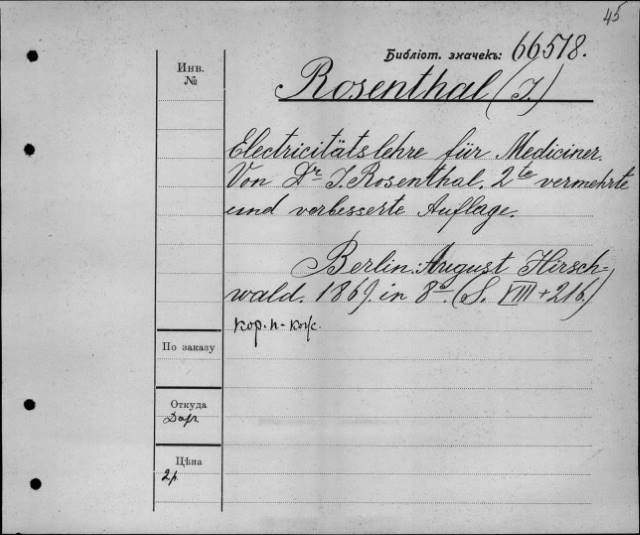 45
Библіот. значекъ: 66518.
Инв.
№
Rosenthal (J.)
Electricitätslehre für Mediciner.
Von Dr J. Rosenthal. 2te vermehrte
und verbesserte Auflage.
Berlin. August Hirsch-
wald. 1869. in 8o. (S. VIII + 216.)
кор. п. кож.
По заказу
Откуда
Дар
Цѣна
2 р.